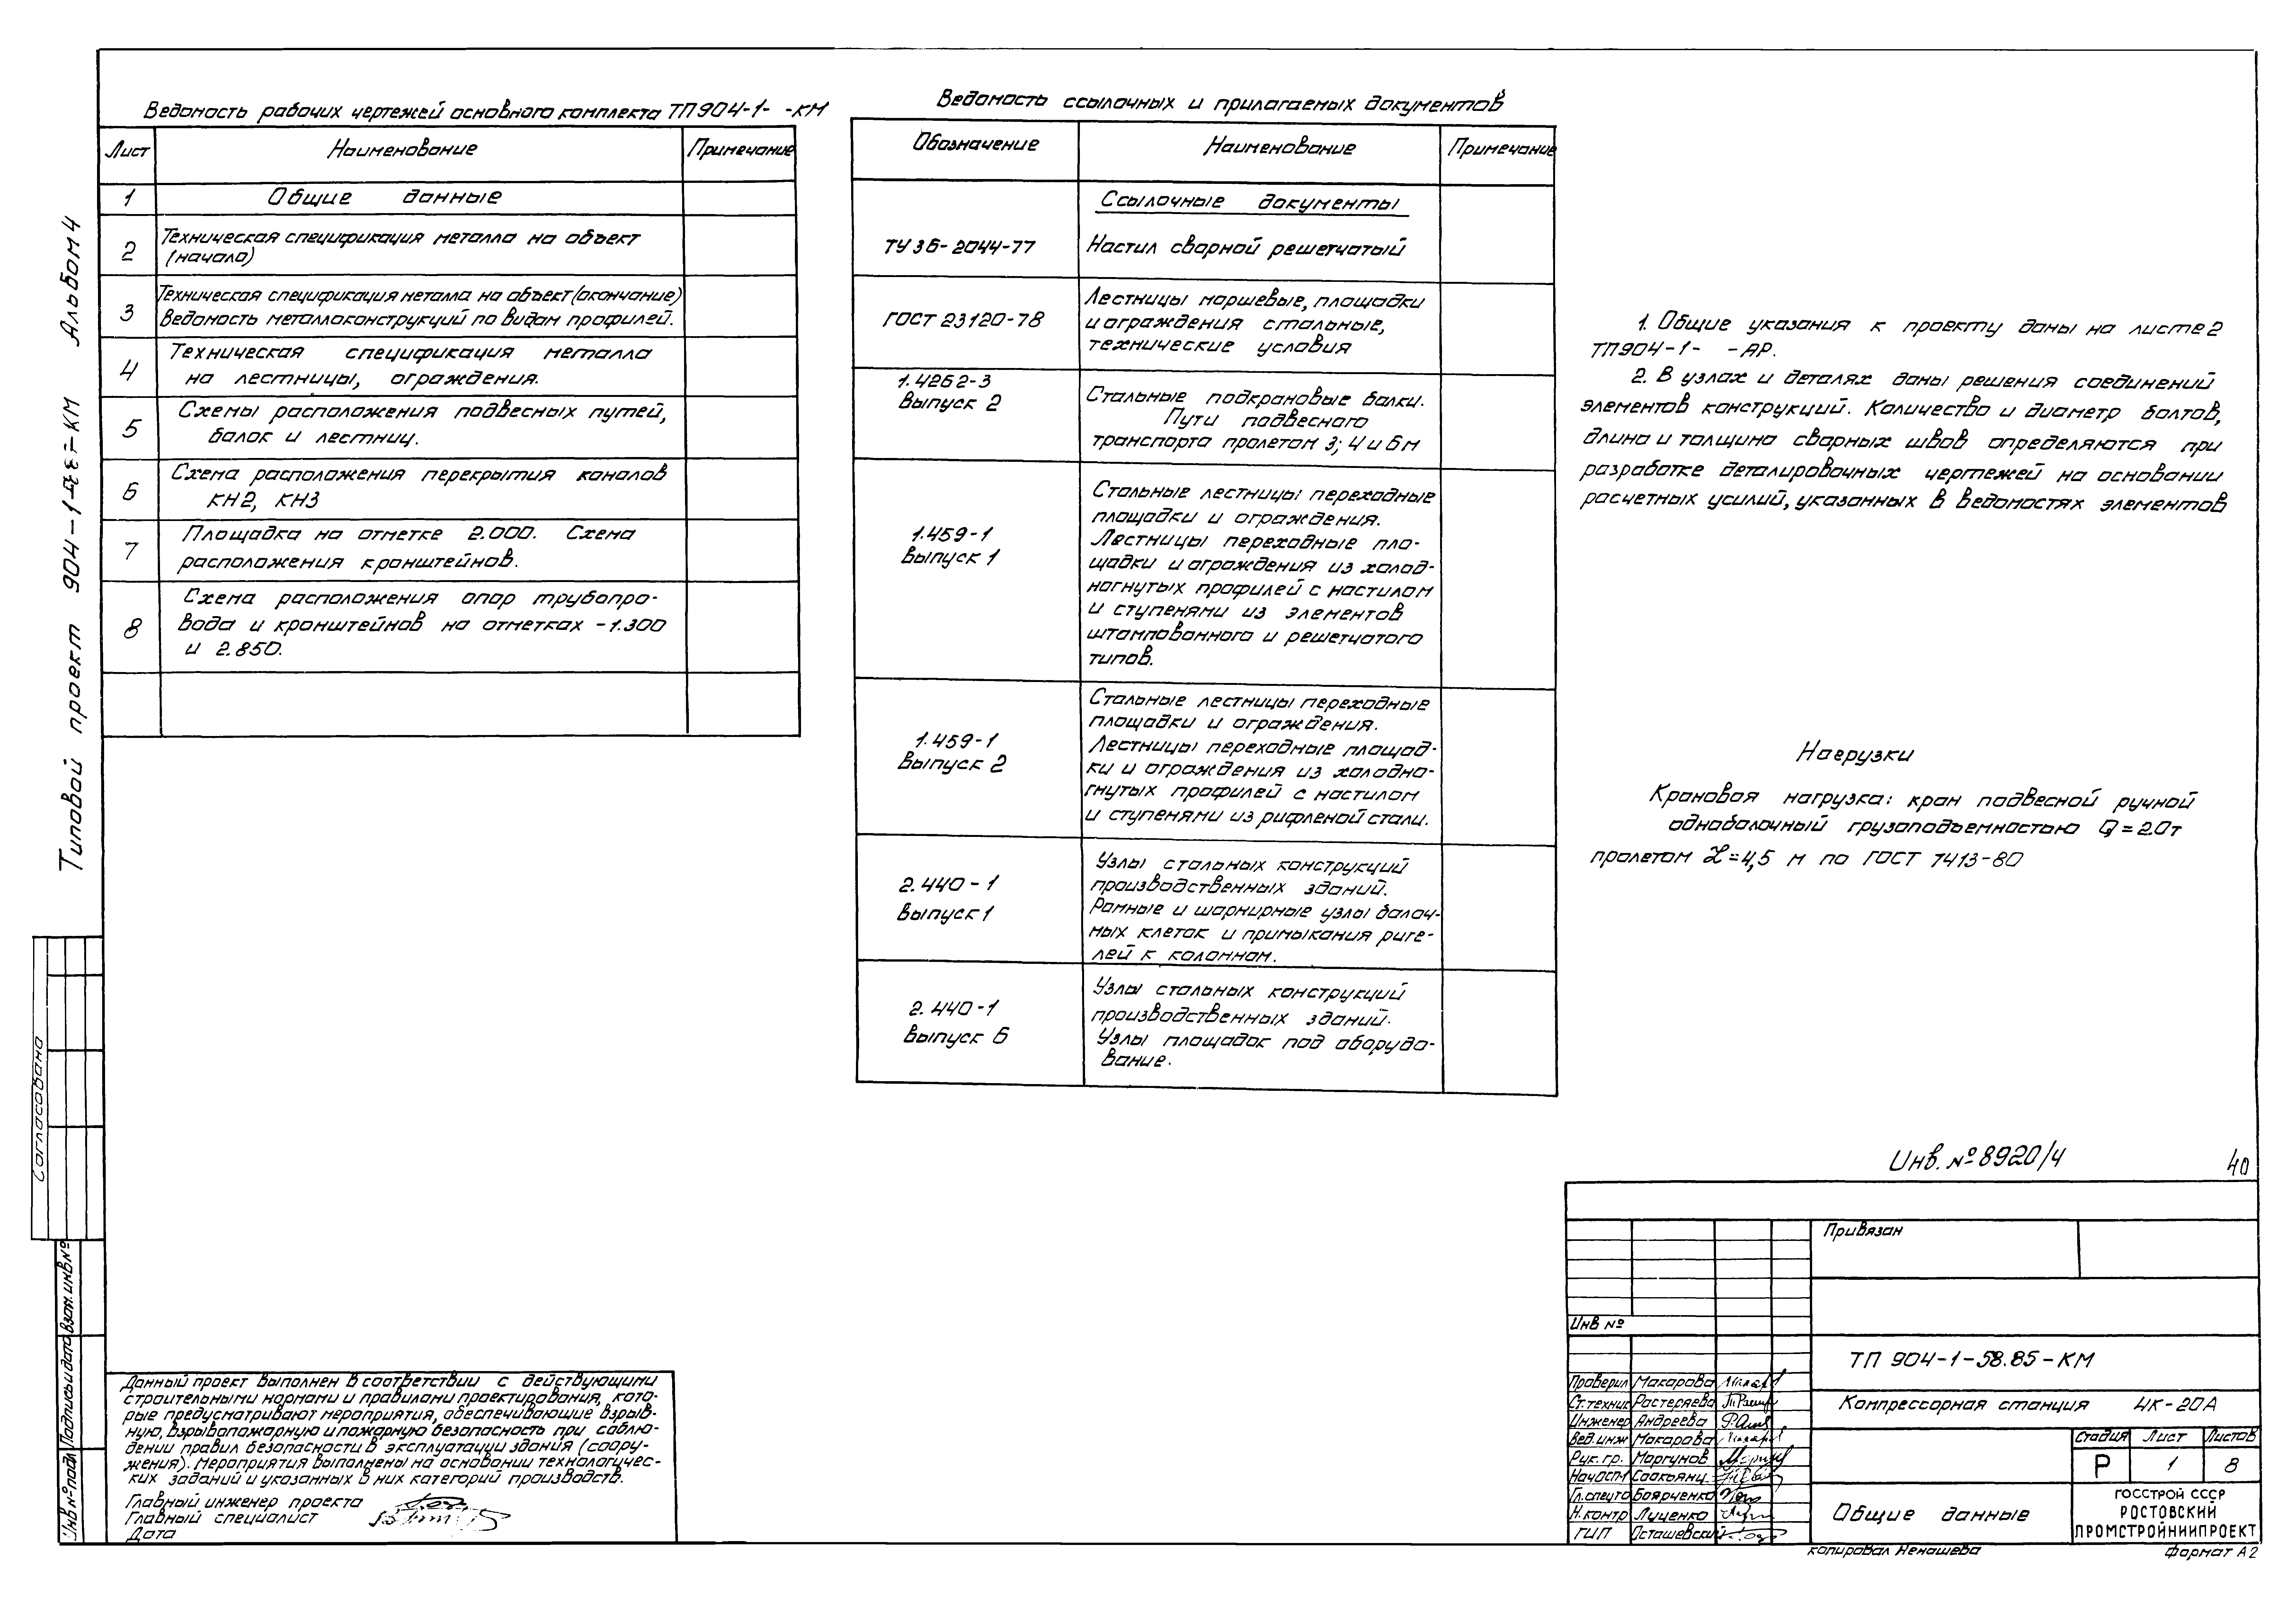 Типовой проект 904-1- -КМ Альбом 4
Ведомость рабочих чертежей основного комплекта ТП 904-1- -КМ
Лист
Наименование
Примечание
1
Общие данные
2
Техническая спецификация металла на объект
(начало)
3
Техническая спецификация металла на объект (окончание)
Ведомость металлоконструкций по видам профилей.
4
Техническая спецификация металла
на лестницы, ограждения.
5
Схемы расположения подвесных путей,
балок и лестниц.
6
Схема расположения перекрытия каналов
КН2, КН3
7
Площадка на отметке 2.000. Схема
расположения кронштейнов.
8
Схема расположения опор трубопро-
вода и кронштейнов на отметках -1.300
и 2.850.
Ведомость ссылочных и прилагаемых документов
Обозначение
Наименование
Примечание
Ссылочные документы
ТУ 36-2044-77
Настил сварной решетчатый
ГОСТ 23120-78
Лестницы маршевые, площадки
и ограждения стальные,
технические условия
1.4262-3
Выпуск 2
Стальные подкрановые балки.
Пути подвесного
транспорта пролетом 3; 4 и 6 м
1.459-1
Выпуск 1
Стальные лестницы переходные
площадки и ограждения.
Лестницы переходные пло-
щадки и ограждения из холод-
ногнутых профилей с настилом
и ступенями из элементов
штампованного и решетчатого
типов.
1.459-1
Выпуск 2
Стальные лестницы переходные
площадки и ограждения.
Лестницы переходные площад-
ки и ограждения из холодно-
гнутых профилей с настилом
и ступенями из рифленой стали.
2.440-1
Выпуск 1
Узлы стальных конструкций
производственных зданий.
Рамные и шарнирные узлы балоч-
ных клеток и примыкания риге-
лей к колоннам.
2.440-1
Выпуск 6
Узлы стальных конструкций
производственных зданий.
Узлы площадок под оборудо-
вание.
1. Общие указания к проекту даны на листе 2
ТП904-1- -АР.
2. В узлах и деталях даны решения соединений
элементов конструкций. Количество и диаметр болтов,
длина и толщина сварных швов определяются при
разработке деталировочных чертежей на основании
расчетных усилий, указанных в ведомостях элементов
Нагрузки
Крановая нагрузка: кран подвесной ручной
однобалочный грузоподъемностью Q=2.0т
пролетом L=4,5 м по ГОСТ 7413-80
Инв. № 8920/4
40
Согласовано
Взам. инв №
Подпись и дата
Инв № подл
Данный проект выполнен в соответствии с действующими
строительными нормами и правилами проектирования, кото-
рые предусматривают мероприятия, обеспечивающие взрыв-
ную, взрывопожарную и пожарную безопасность при соблю-
дении правил безопасности в эксплуатации здания (соору-
жения). Мероприятия выполнены на основании технологичес-
ких заданий и указанных в них категорий производств.
Главный инженер проекта
Главный специалист
Дата
Привязан
Инв №
ТП 904-1-58.85-КМ
Проверил Макарова
Ст.техник Растеряева
Инженер Андреева
Вед.инж Макарова
Рук. гр. Моргунов
Нач ОСП-1 Саакьянц
Гл.спец то Боярченко
Н.контр Луценко
ГИП Осташевский
Компрессорная станция 4К-20А
Стадия Лист Листов
Р 1 8
Общие данные
ГОССТРОЙ СССР
РОСТОВСКИЙ
ПРОМСТРОЙНИИПРОЕКТ
копировал Ненашева
Формат А2